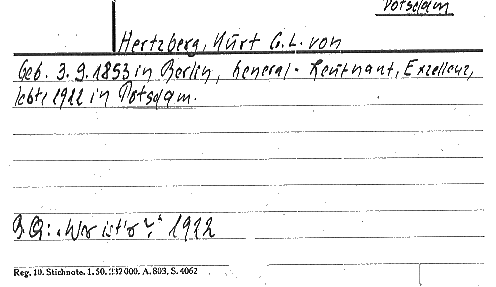 Potsdam
Hertzberg, Kurt G.L. von
Geb. 3.9.1853 in Berlin, General-Leutnant, Exzellenz,
lebte 1922 in Potsdam.
Q: "Wer ist's?" 1922
Reg. 10. Stichnote. 1. 50. 232000. A. 803. S. 4062